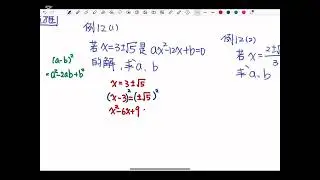 例12(1)
若x=3±√5是ax²-12x+b=0
的解，求a、b
(a-b)²
=a²-2ab+b²
x=3±√5
(x-3)²=(±√5)²
x²-6x+9
例12(2)
若x=2±√
3
求a、b